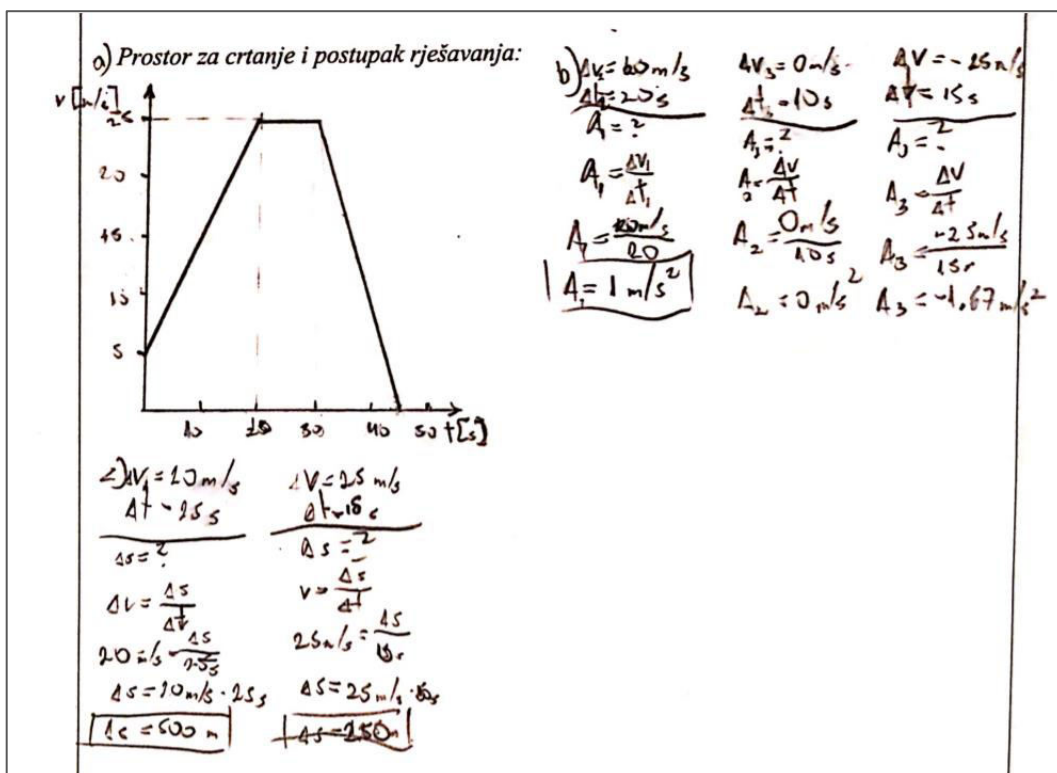 a) Prostor za crtanje i postupak rješavanja:
v [m/s]
25
20
15
5
10
20
30
40
50
t[s]
b)
Δt = 20s
A₁ = ?
A₁ = ΔV₁/Δt₁
A₁ = 20m/s / 20
A₁ = 1 m/s²
ΔV₂ = 0 m/s
Δt₂ = 10s
A₂ = ?
A₂ = ΔV/Δt
A₂ = 0m/s / 10s
A₂ = 0 m/s²
ΔV = -25m/s
ΔT = 15s
A₃ = ?
A₃ = ΔV/Δt
A₃ = -25m/s / 15s
A₃ = -1.67 m/s²
c) ΔV₁ = 20 m/s
Δt = 25s
Δs = ?
ΔV = Δs/Δt
20 m/s = Δs/25s
Δs = 20m/s · 25s
Δs = 500 m
ΔV = 25 m/s
Δs = ?
v = Δs/Δt
25m/s = Δs
Δs = 25m/s
Δs = 250m